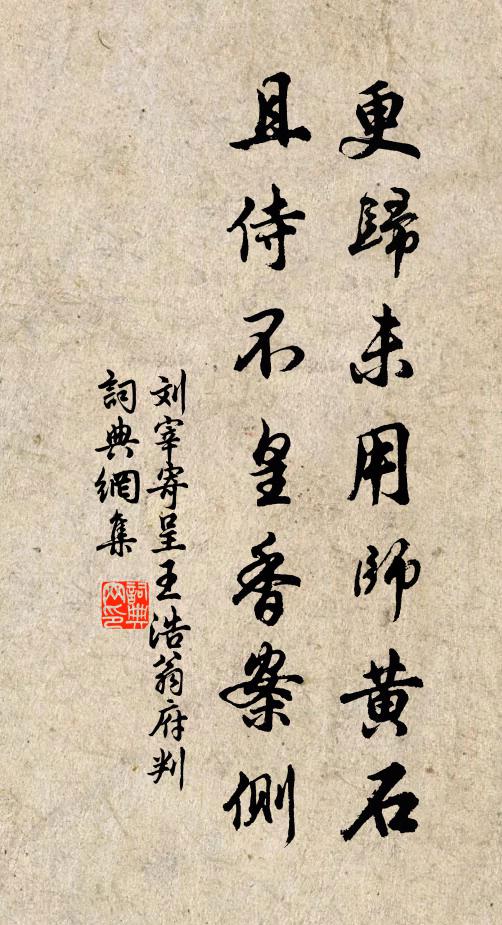 更歸未用師黄石
且侍不皇香案側
刘宰寄呈王浩翁府判
詞典網集
詞典
网印